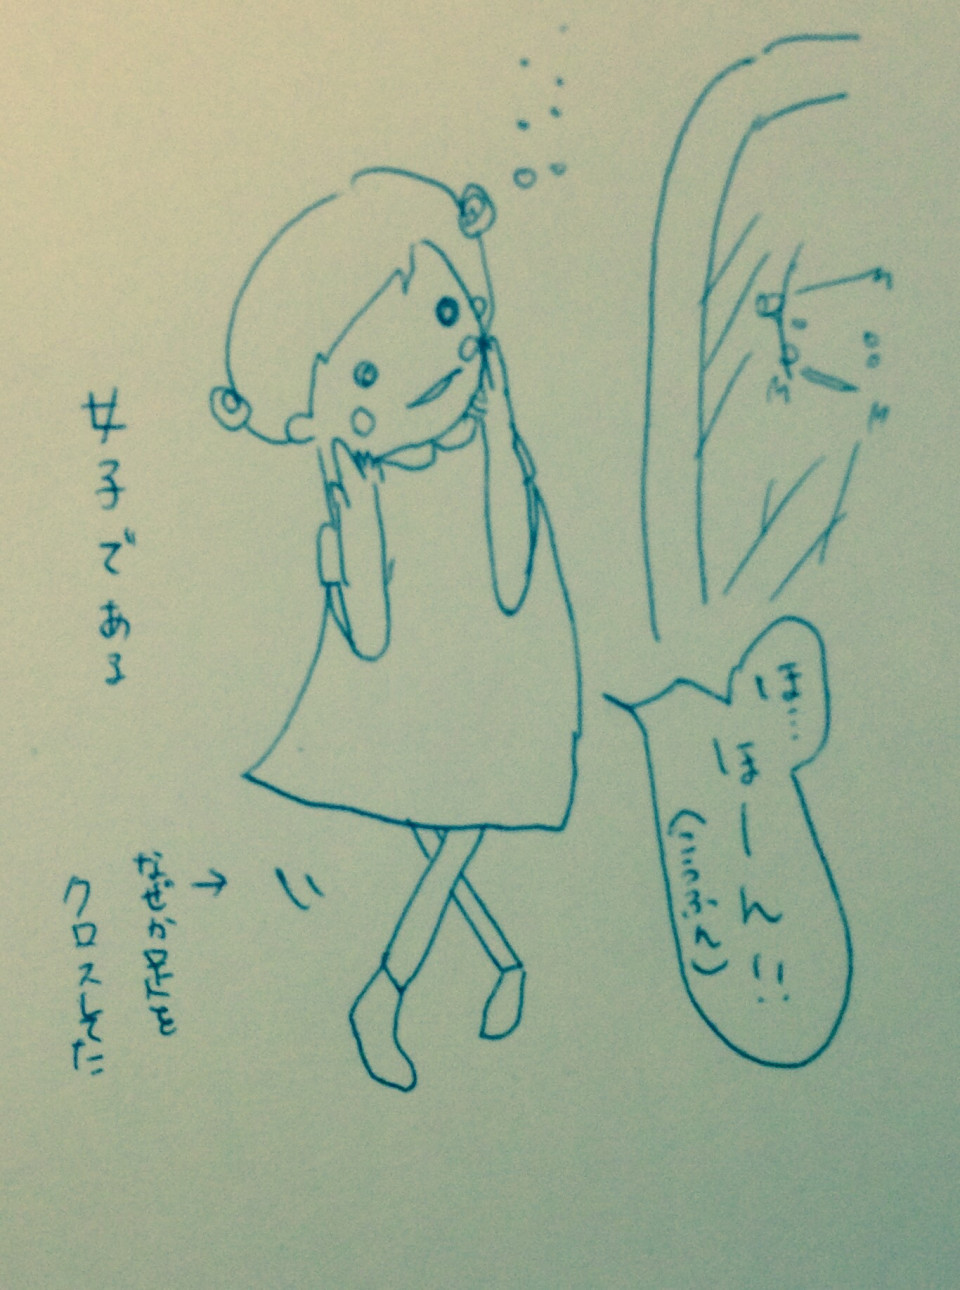 ほ…
ほーん!!
(こうふん)
女子である
なぜか足を
クロスしてた